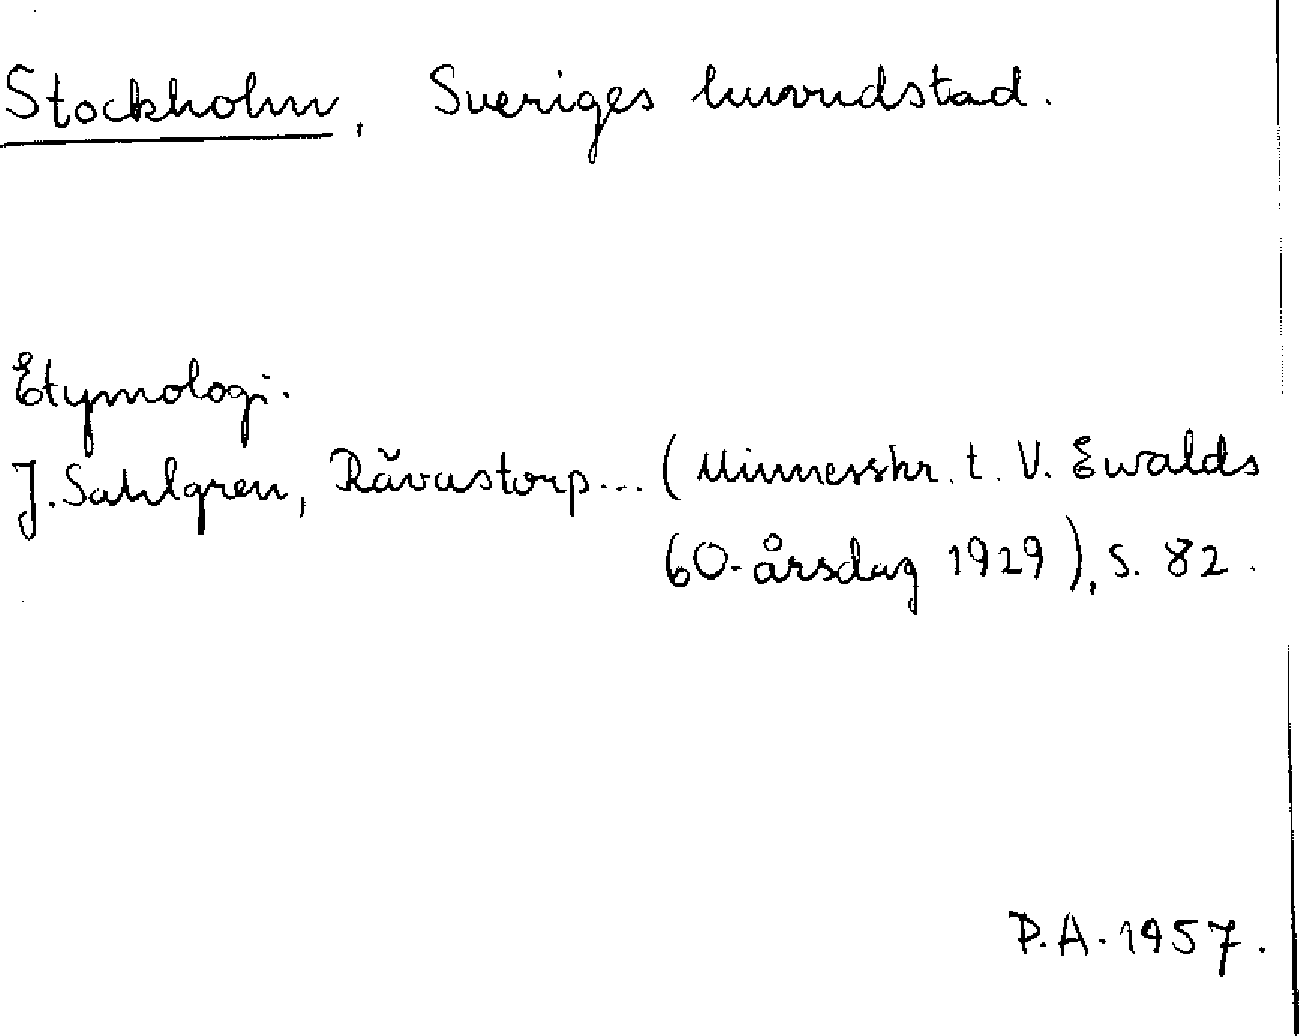 Stockholm, Sveriges huvudstad.
Etymologi.
J. Sahlgren, Rävastorp... (Minnesskr. t. V. Ewalds
60-årsdag 1929), s. 82.
P.A. 1957.